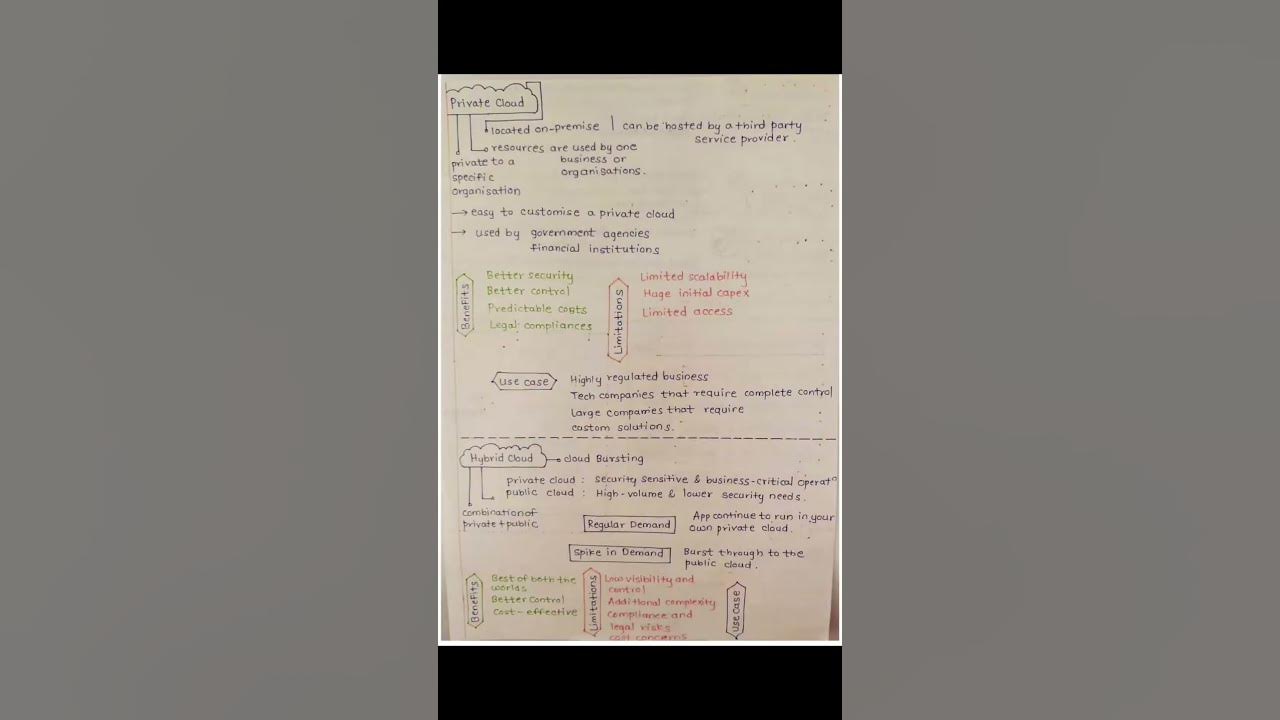 Private Cloud
located on-premise | can be hosted by a third party
service provider.
resources are used by one
business or
organisations.
private to a
specific
organisation
→ easy to customise a private cloud
→ used by government agencies
financial institutions
Benefits
Better security
Better control
Predictable costs
Legal compliances
Limitations
Limited scalability
Huge initial capex
Limited access
use case
Highly regulated business
Tech companies that require complete control
Large companies that require
custom solutions.
Hybrid Cloud
cloud Bursting
private cloud : security sensitive & business-critical operat°
public cloud : High-volume & lower security needs.
combination of
private + public
Regular Demand
App continue to run in your
own private cloud.
Spike in Demand
Burst through to the
public cloud.
Benefits
Best of both the
worlds
Better Control
Cost-effective
Limitations
Low visibility and
control
Additional complexity
compliance and
legal risks
cost concerns
use case